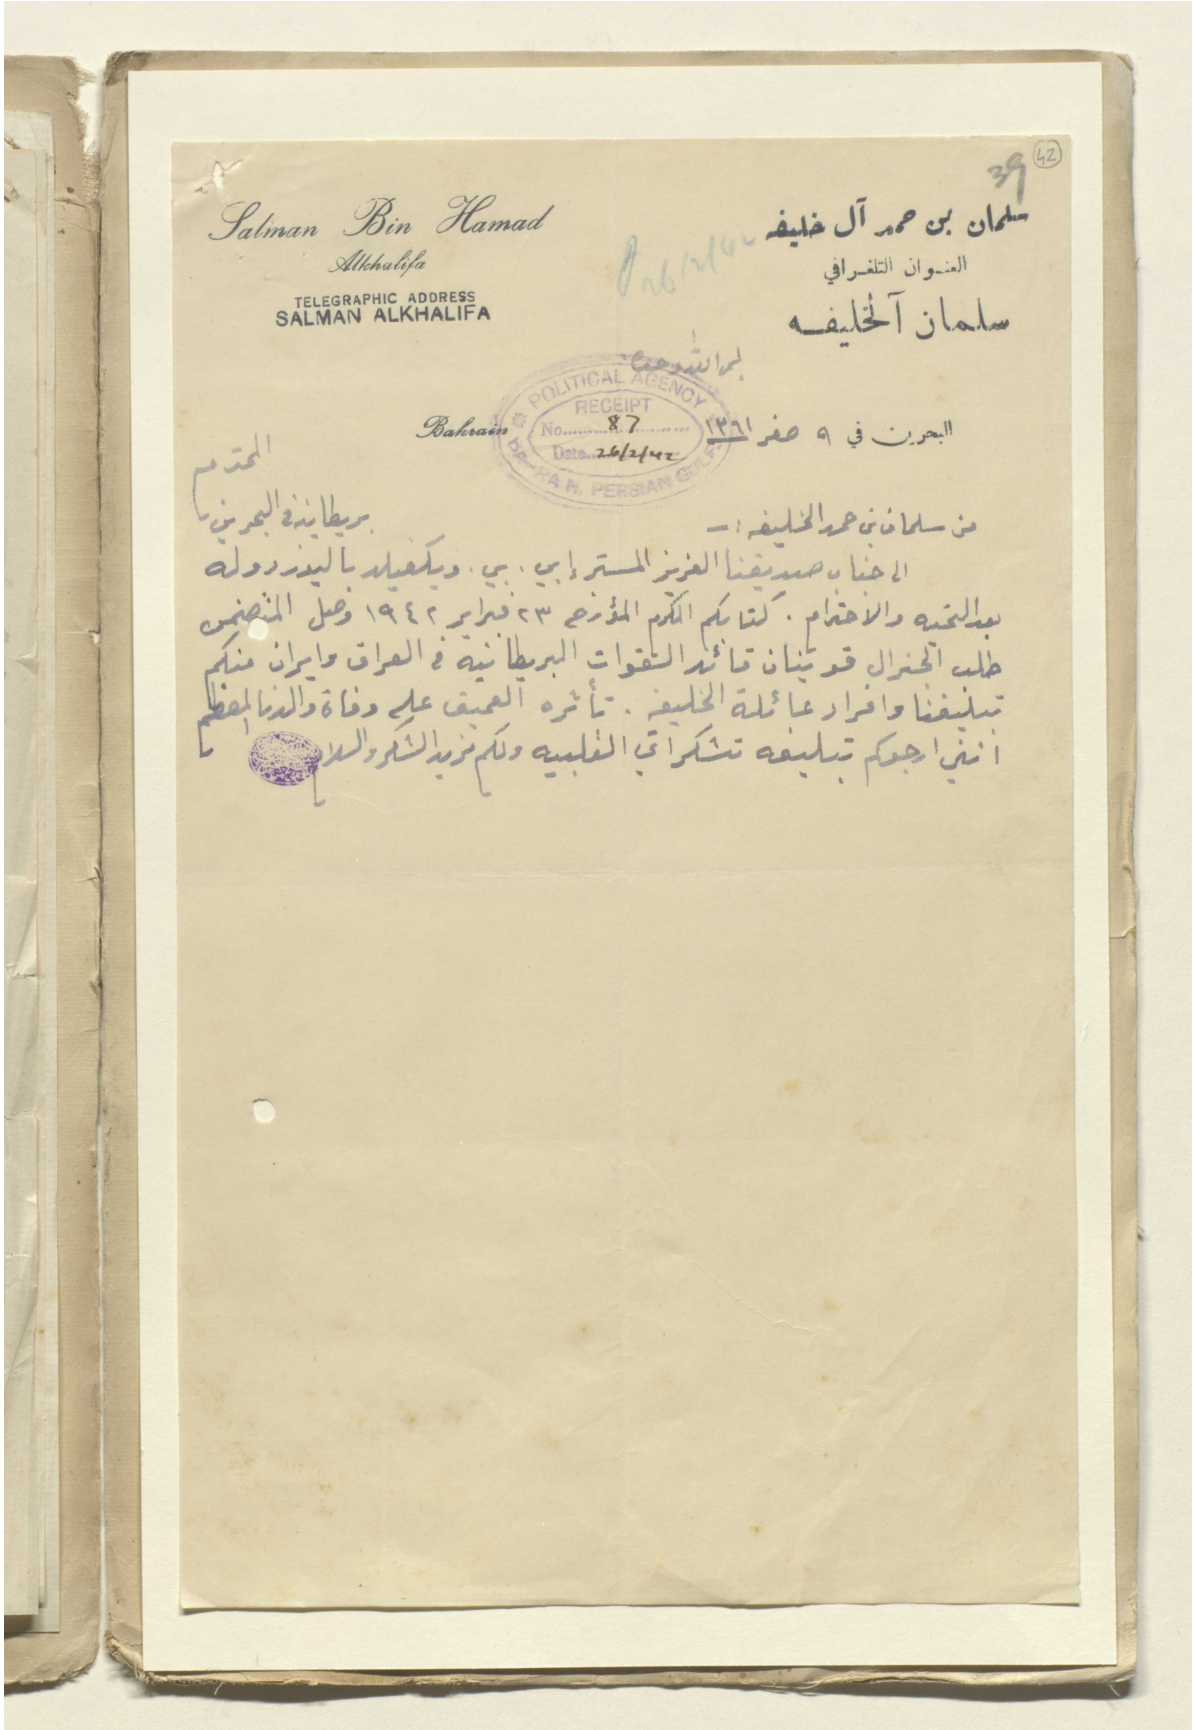 42
39
Salman Bin Hamad
Alkhalifa
TELEGRAPHIC ADDRESS
SALMAN ALKHALIFA
سلمان بن حمد آل خليفه
العنوان التلغرافي
سلمان آلخليفه
26/2/42
POLITICAL AGENCY
RECEIPT
No. 87
Date. 26/2/42
PERSIAN GULF
Bahrain
البحرين في ٩ صفر ١٣٦١
المحترم
من سلمان بن حمد الخليفه :-
بريطانية في البحرين
الى جناب صديقنا العزيز المستر إي . بي . ويكفيلد باليوز دولة
بعد التحيه والاحترام . كتابكم المكرم المؤرخ ٢٣ فبراير ١٩٤٢ وصل المتضمن
طلب الجنرال قوينان قائد القوات البريطانيه في العراق وايران منكم
تبليغنا وافراد عائلة الخليفه . تأثره العميق على وفاة والدنا المعظم
انني ارجوكم تبليغه تشكراتي القلبيه ولكم مزيد الشكر والسلام